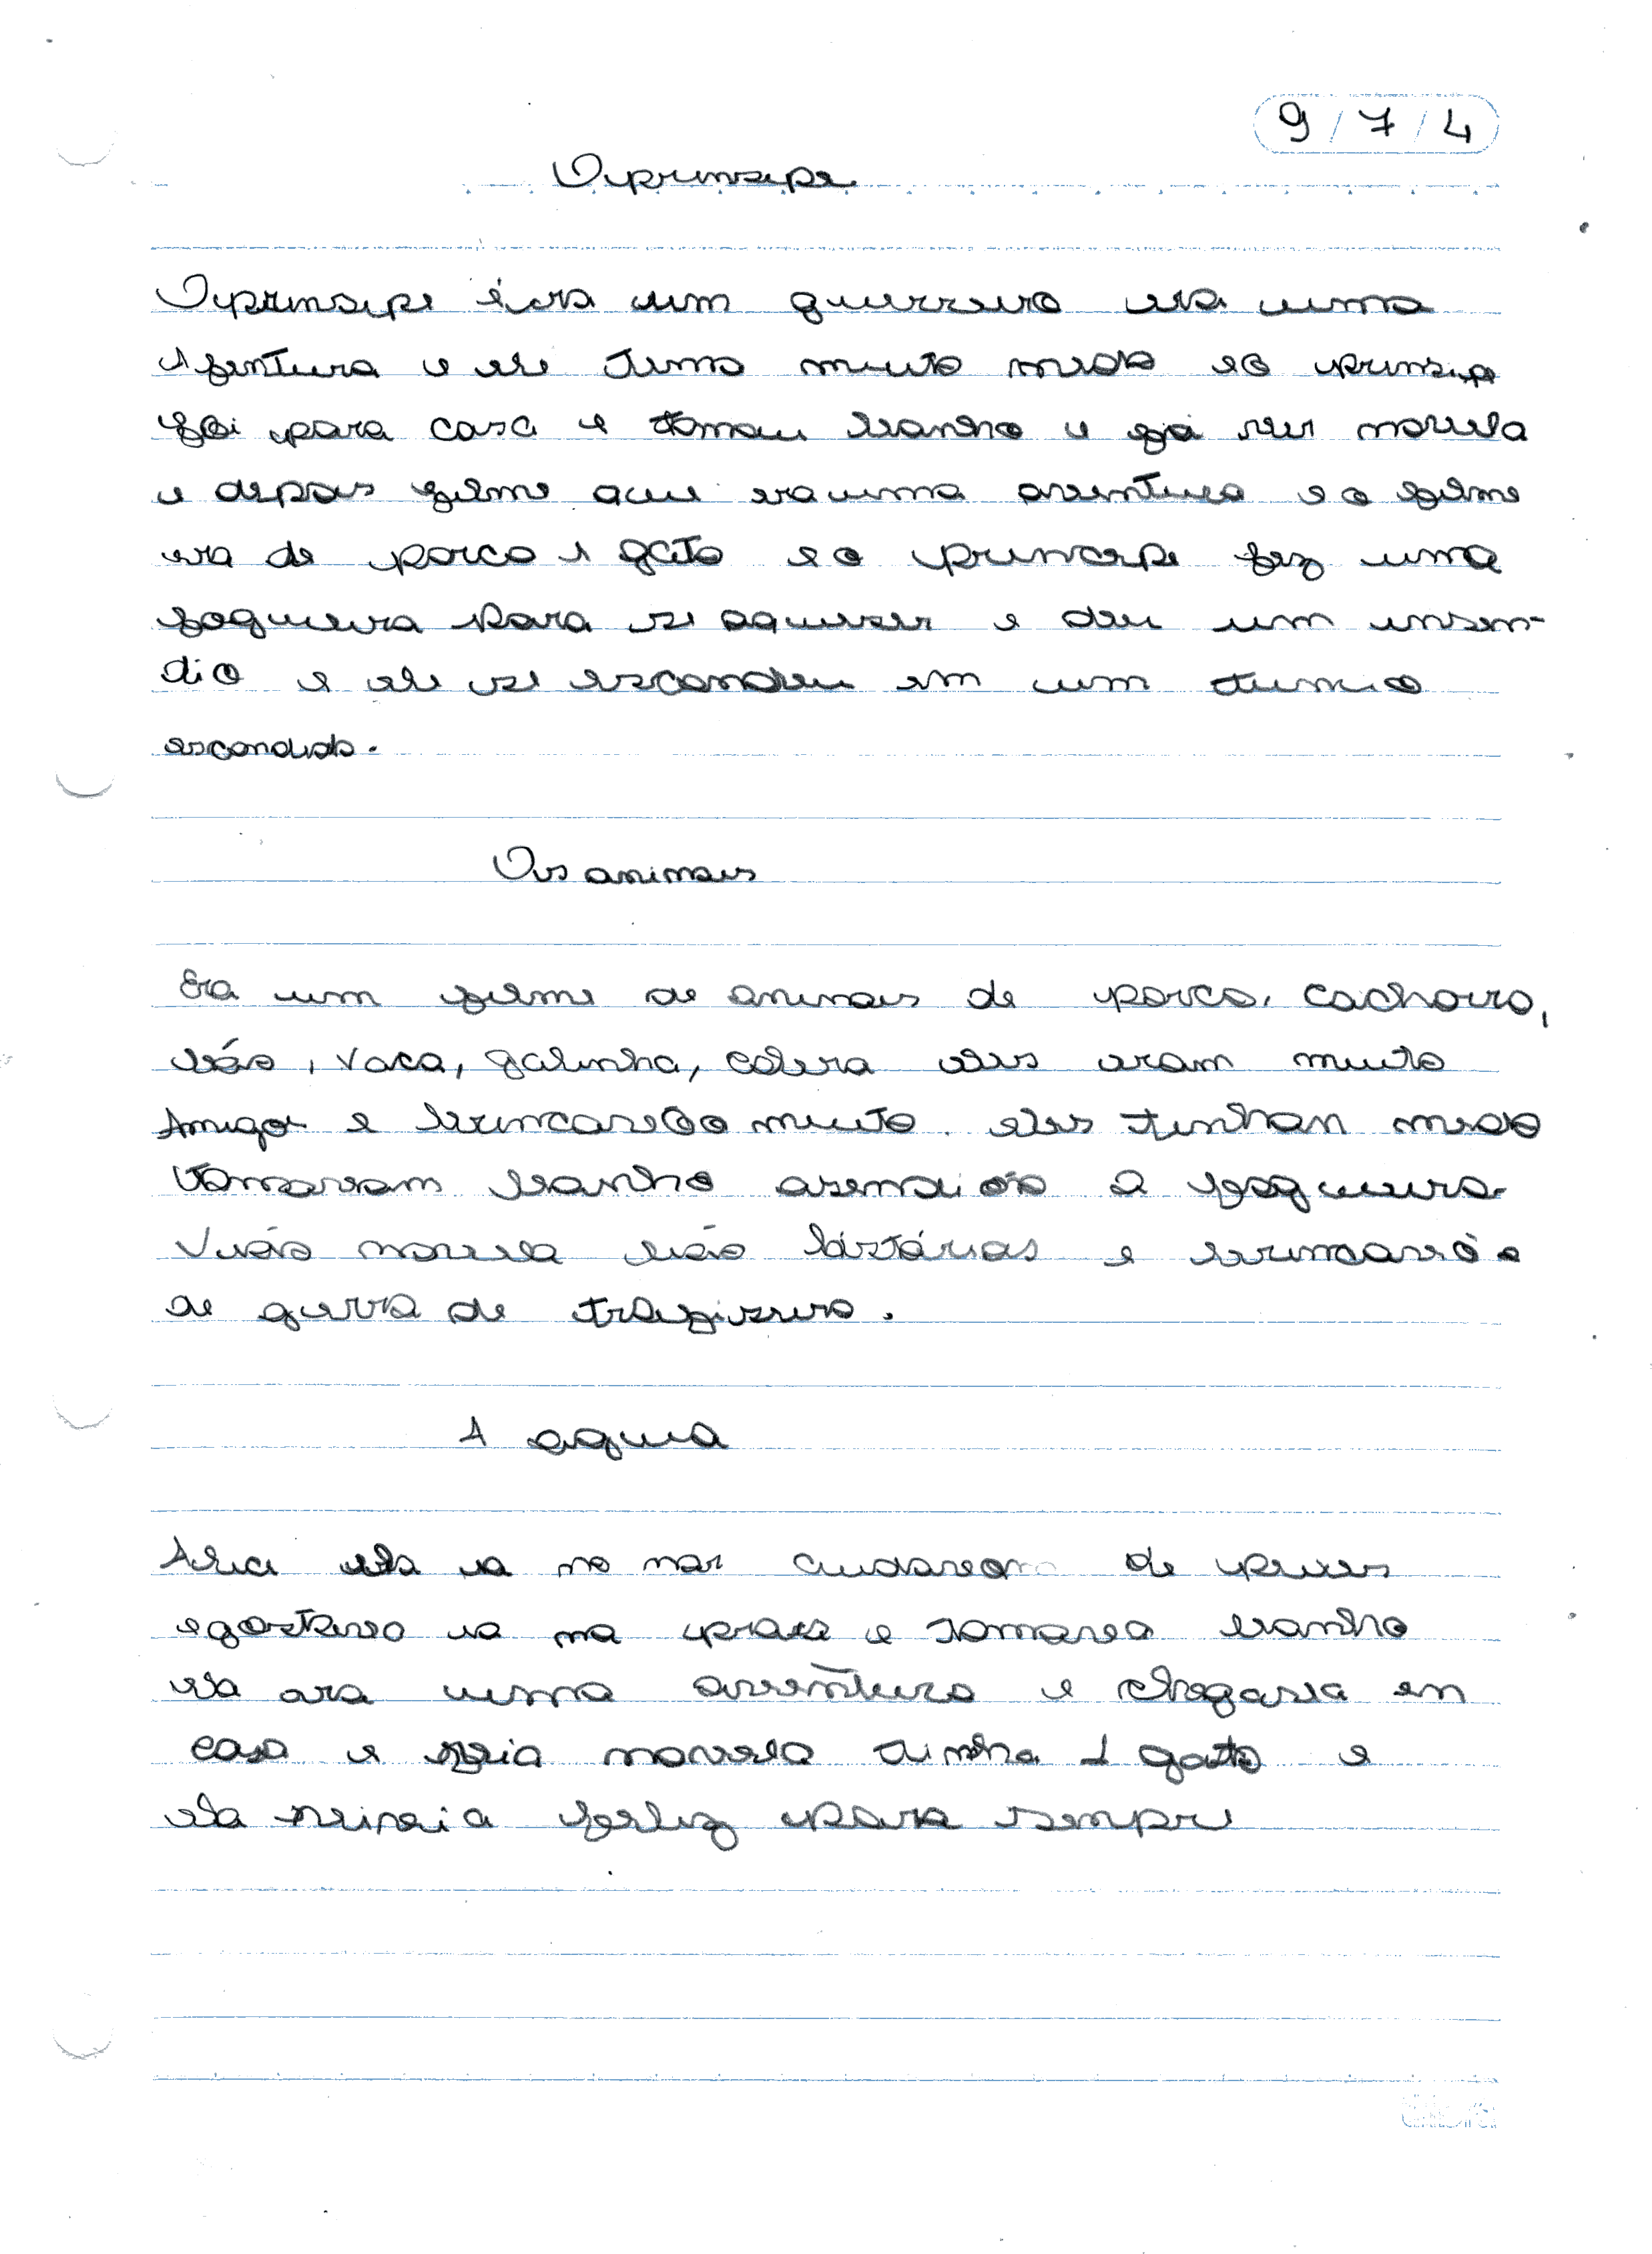 9/7/4
O prinsipe
O prinsipe éra um guerreiro era uma
Afentura e ele tino muito medo e o prinsipe
foi para casa e tomou banho e foi ver novela
e depois filme que era uma aventura e o filme
era de porco e gato e o principe fez uma
fogueira para se aqueser e deu um insen-
dio e ele se escondeu em um tunio
escondido.
Os animais
Era um filme de animais de porco, cachorro,
leão, vaca, galinha, cobra eles eram muito
Amigos e brincavão muito. eles tinham medo
tomavam banho asendião a fogueira
Vião novela lião histórias e brincavão
de guerra de traviseiro.
A agua
ela ia no mar de peixes
ia na praia e tomava banho
ela ara uma aventura e chegava en
casa e novela tinha 1 gato e
ela feliz para senpre